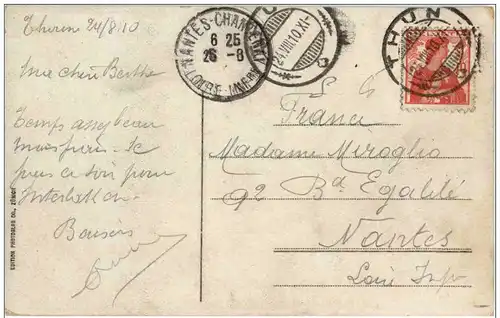 Thun 24/8.10
Ma chère Berthe
Temps assez beau
mais frais. Je
pars ce soir pour
Interlaken.
Baisers
France
Madame Miroglio
92 Bd Egalité
Nantes
Loire Infre
NANTES-CHANTENAY
6 25
26 -8
LOIRE-INFRE
24.VIII.10.XI-
THUN
24.VIII.10.XI-
EDITION PHOTOGLOB CO., ZÜRICH